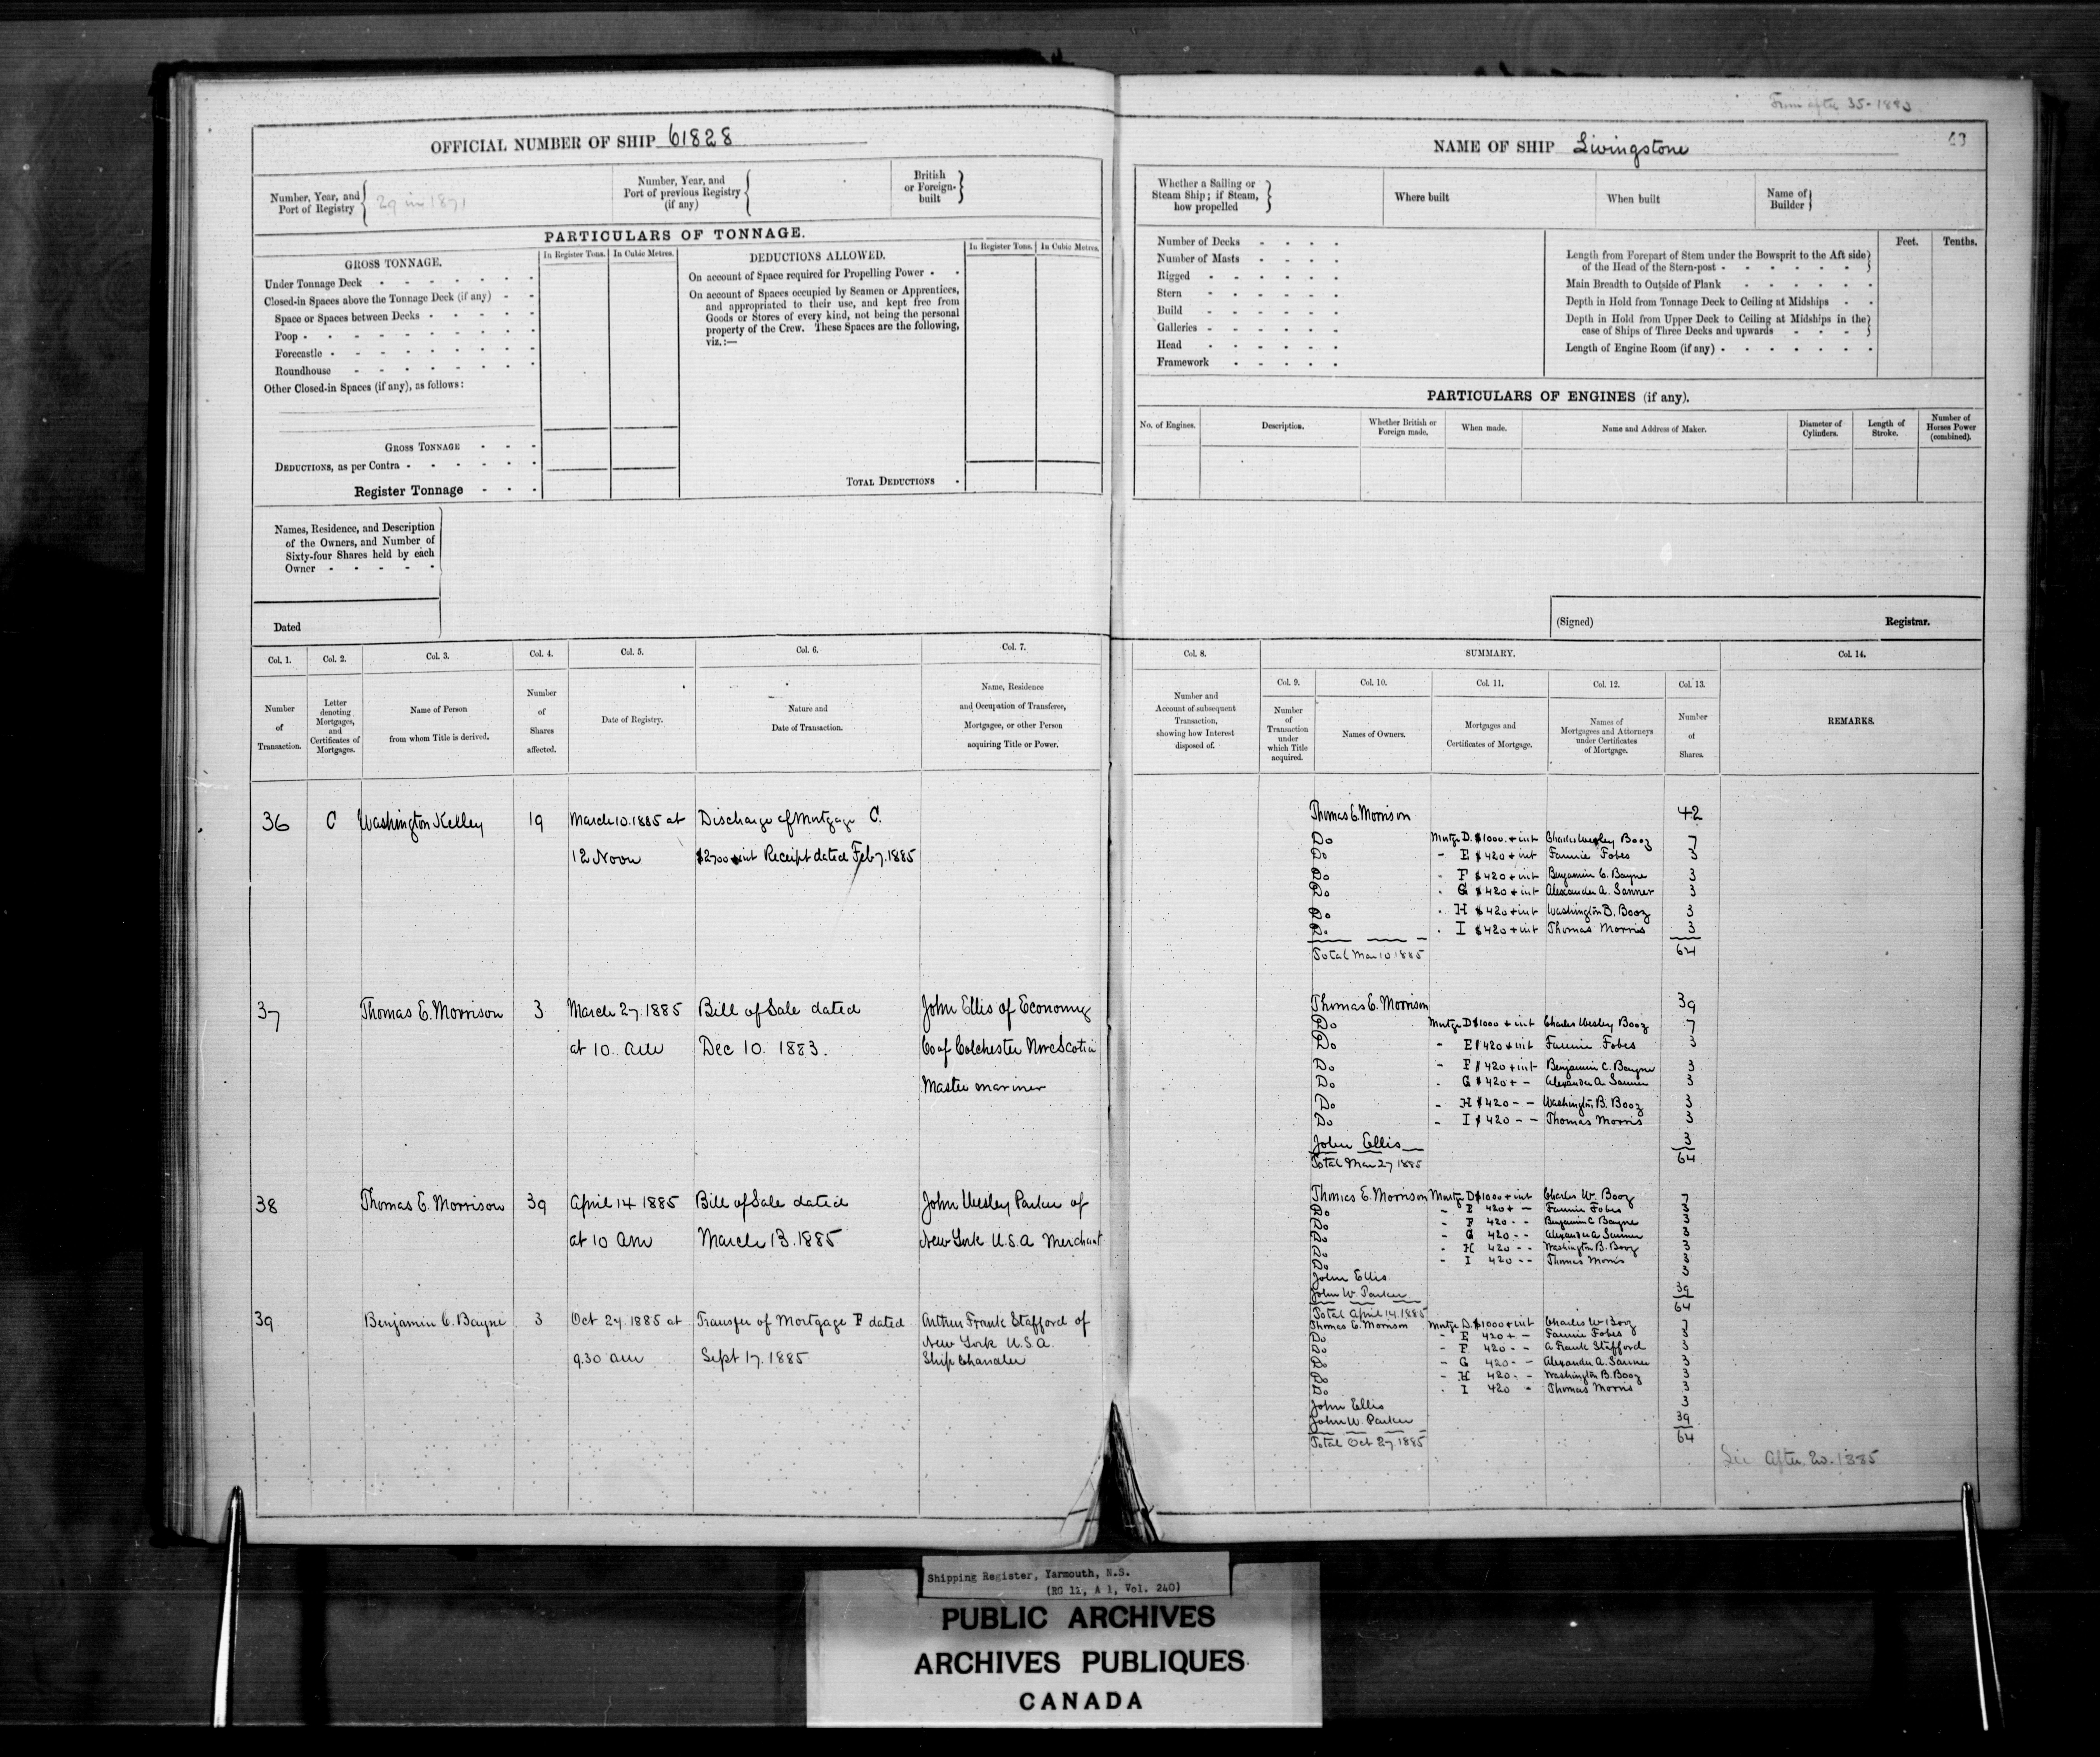 From after 35-1883
OFFICIAL NUMBER OF SHIP 61828
Number, Year, and Port of Registry
29 in 1871
Number, Year, and Port of previous Registry (if any)
British or Foreign-built
PARTICULARS OF TONNAGE.
GROSS TONNAGE.
In Register Tons. In Cubic Metres.
DEDUCTIONS ALLOWED.
In Register Tons. In Cubic Metres.
Under Tonnage Deck
Closed-in Spaces above the Tonnage Deck (if any)
Space or Spaces between Decks
Poop
Forecastle
Roundhouse
Other Closed-in Spaces (if any), as follows:
GROSS TONNAGE
DEDUCTIONS, as per Contra
Register Tonnage
On account of Space required for Propelling Power
On account of Spaces occupied by Seamen or Apprentices,
and appropriated to their use, and kept free from
Goods or Stores of every kind, not being the personal
property of the Crew. These Spaces are the following,
viz.:—
TOTAL DEDUCTIONS
Names, Residence, and Description
of the Owners, and Number of
Sixty-four Shares held by each
Owner
Dated
NAME OF SHIP Livingstone
Whether a Sailing or
Steam Ship; if Steam,
how propelled
Where built
When built
Name of Builder
Number of Decks
Number of Masts
Rigged
Stern
Build
Galleries
Head
Framework
Feet. Tenths.
Length from Forepart of Stem under the Bowsprit to the Aft side
of the Head of the Stern-post
Main Breadth to Outside of Plank
Depth in Hold from Tonnage Deck to Ceiling at Midships
Depth in Hold from Upper Deck to Ceiling at Midships in the
case of Ships of Three Decks and upwards
Length of Engine Room (if any)
PARTICULARS OF ENGINES (if any).
No. of Engines.
Description.
Whether British or Foreign made.
When made.
Name and Address of Maker.
Diameter of Cylinders.
Length of Stroke.
Number of Horses Power (combined).
(Signed) Registrar.
Col. 1. Col. 2. Col. 3. Col. 4. Col. 5. Col. 6. Col. 7.
Number of Transaction.
Letter denoting Mortgages, and Certificates of Mortgages.
Name of Person from whom Title is derived.
Number of Shares affected.
Date of Registry.
Nature and Date of Transaction.
Name, Residence and Occupation of Transferee, Mortgagee, or other Person acquiring Title or Power.
Col. 8. SUMMARY. Col. 14.
Col. 9. Col. 10. Col. 11. Col. 12. Col. 13.
Number and Account of subsequent Transaction, showing how Interest disposed of.
Number of Transaction under which Title acquired.
Names of Owners.
Mortgages and Certificates of Mortgage.
Names of Mortgagees and Attorneys under Certificates of Mortgage.
Number of Shares.
REMARKS.
36 C Washington Kelley 19 March 10. 1885 at Discharge of Mortgage C.
12 Noon $2700 + int Receipt dated Feb 7. 1885
Thomas E. Morrison 42
Do Mortge D. $1000. + int Charles Wesley Booz 7
Do - E $420 + int Fannie Fobes 3
Do - F $420 + int Benjamin C. Bayne 3
Do - G $420 + int Alexander A. Sanner 3
Do - H $420 + int Washington B. Booz 3
Do - I $420 + int Thomas Morris 3
Total Mar 10. 1885 64
37 Thomas E. Morrison 3 March 27. 1885 Bill of Sale dated John Ellis of Economy
at 10. am Dec 10. 1883. Co of Colchester Nova Scotia
Master mariner
Thomas E. Morrison 39
Do Mortge D $1000 + int Charles Wesley Booz 7
Do - E $420 + int Fannie Fobes 3
Do - F $420 + int Benjamin C. Bayne 3
Do - G $420 + - Alexander A. Sanner 3
Do - H $420 - - Washington B. Booz 3
Do - I $420 - - Thomas Morris 3
John Ellis 3
Total Mar 27 1885 64
38 Thomas E. Morrison 39 April 14 1885 Bill of Sale dated John Wesley Parker of
at 10 am March 13. 1885 New York U.S.A Merchant
Thomas E. Morrison Mortge D $1000 + int Charles W. Booz 7
Do - E 420 + - Fannie Fobes 3
Do - F 420 - - Benjamin C Bayne 3
Do - G 420 - - Alexander A Sanner 3
Do - H 420 - - Washington B. Booz 3
Do - I 420 - - Thomas Morris 3
John Ellis 3
John W. Parker 39
Total April 14. 1885 64
39 Benjamin C. Bayne 3 Oct 27. 1885 at Transfer of Mortgage F dated Arthur Frank Stafford of
New York U.S.A.
9.30 am Sept 17. 1885 Ship Chandler
Thomas E. Morrison Mortge D. $1000 + int Charles W Booz 7
Do - E 420 + - Fannie Fobes 3
Do - F 420 - - A Frank Stafford 3
Do - G 420 - - Alexander A. Sanner 3
Do - H 420 - - Washington B. Booz 3
Do - I 420 - Thomas Morris 3
John Ellis 3
John W. Parker 39
Total Oct 27. 1885 64
See After 20. 1885
Shipping Register, Yarmouth, N.S.
(RG 12, A 1, Vol. 240)
PUBLIC ARCHIVES
ARCHIVES PUBLIQUES
CANADA